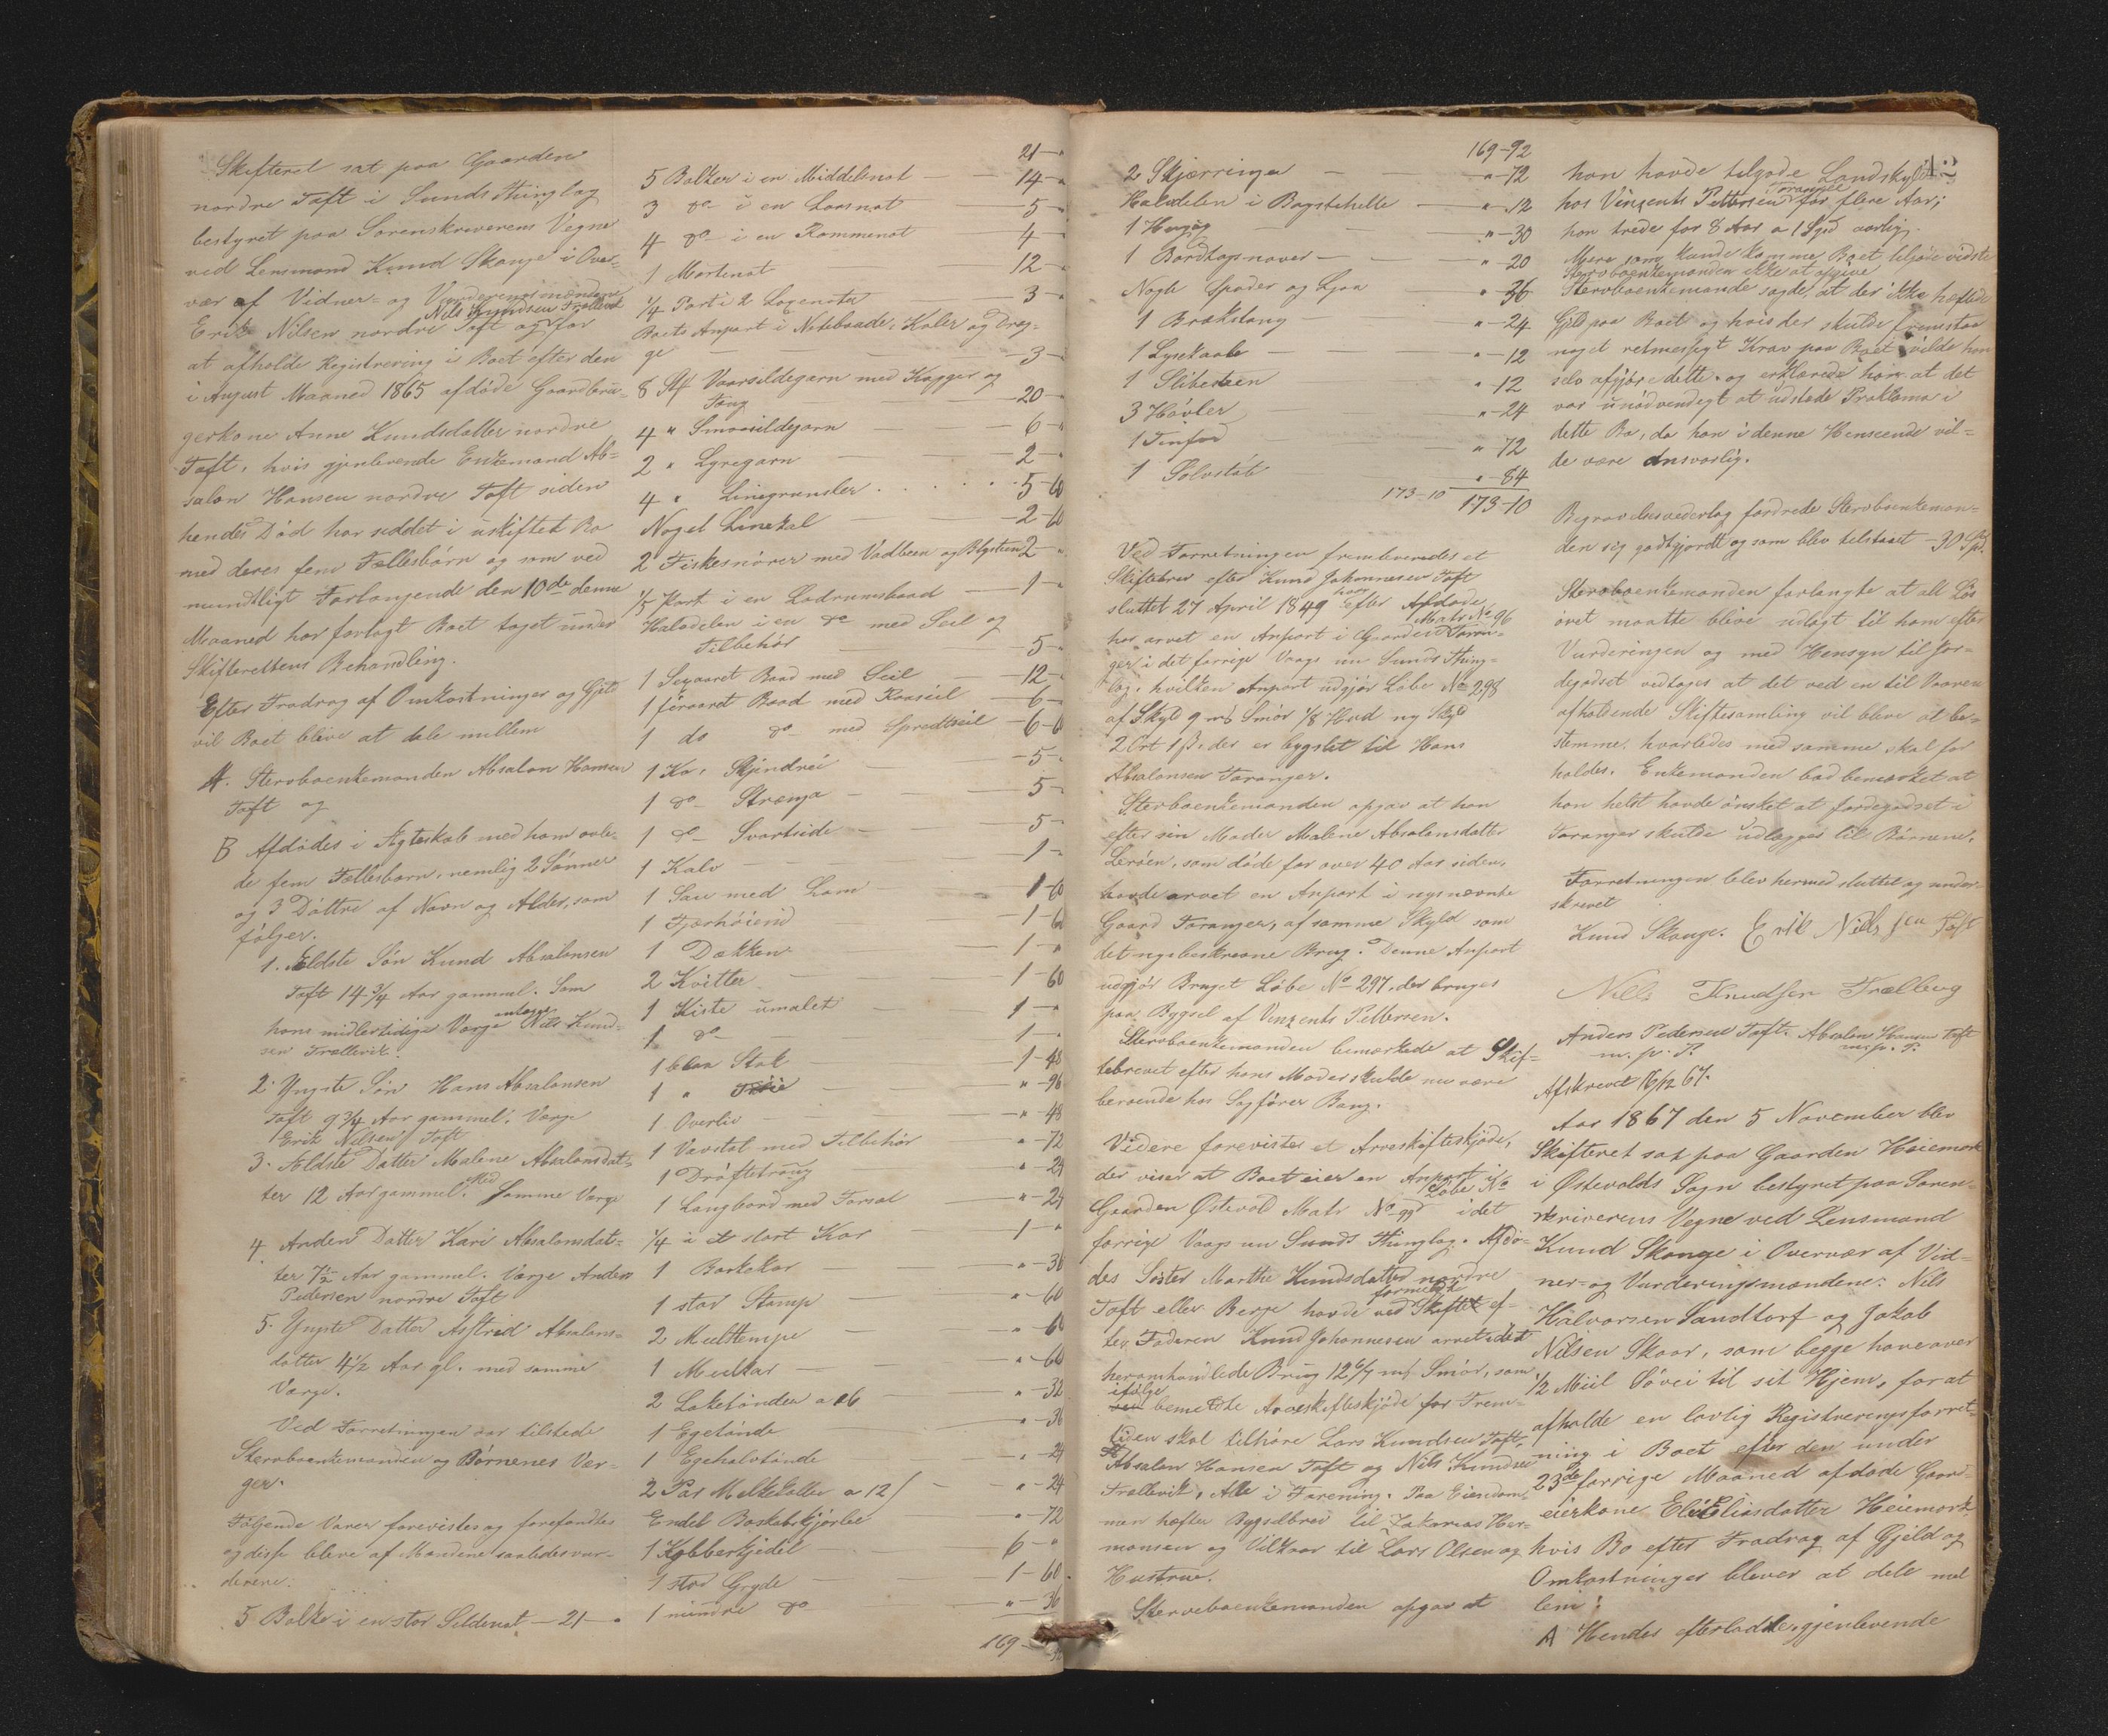 Skifteret sat paa Gaarden
nordre Toft i Sunds Thinglag
bestyret paa Sorenskreverens Vegne
ved Lensmand Knud Skange i Over-
vær af Vidner- og Vurderingsmændene
Nils Knudsen Trællevik
Erik Nilsen nordre Toft og for
at afholde Registrering i Boet efter den
i August Maaned 1865 afdøde Gaardbru-
gerkone Anne Knudsdatter nordre
Toft, hvis gjenlevende Enkemand Ab-
salon Hansen nordre Toft siden
hendes Død har siddet i uskiftet Bo
med deres fem Fællesbørn og som ved
mundtligt Forlangende den 10de denne
Maaned har forlagt Boet taget under
Skifterettens Behandling.
Efter Fradrag af Omkostninger og Gjeld
vil Boet blive at dele mellem
A. Sterboenkemanden Absalon Hansen
Toft og
B Afdødes i Ægteskab med ham avle-
de fem Fællesbørn, nemlig 2 Sønner
og 3 Døttre af Navn og Alder, som
følger.
1. Ældste Søn Knud Absalonsen
Toft 14 3/4 Aar gammel. Som
hans midlertidige Værge antoges Nils Knud-
sen Trællevik.
2. Yngste Søn Hans Absalonsen
Toft 9 3/4 Aar gammel. Værge
Erik Nilsen Toft
3. Ældste Datter Malene Absalonsdat-
ter 12 Aar gammel. Med Samme Værge
4 Anden Datter Kari Absalonsdat-
ter 7 1/2 Aar gammel. Værge Anders
Pedersen nordre Toft
5. Yngste Datter Astrid Absalons-
datter 4 1/2 Aar gl. med samme
Værge.
Ved Forretningen var tilstede
Sterboenkemanden og Børnenes Vær-
ger.
Følgende Varer forevistes og forefandtes
og disse bleve af Mændene saaledes vur-
derede:
5 Bolker i en stor Sildenot — 21 — "
21 — "
5 Bolker i en Middelsnot — 14 — "
3 do i en Laasnot — 5 — "
4 do i en Rammenot — 4 — "
1 Mortenot — 12 — "
1/4 Part i 2 Logenoter — 3 — "
Boets Anpart i Notebaade, Kaler og Dreg-
ge — 3 — "
8 Stk Vaarsildegarn med Kagger og
Toug — 20 — "
4 " Smaasildegarn — 6 — "
2 " Lyregarn — 2 — "
4 " Linegrunsler . . . 5-60
Noget Linekal — 2-60
2 Fiskesnører med Vadbeen og Blysteen 2 — "
1/5 Part i en Ladrumsbaad — 1 — "
Halvdelen i en do med Seil og
Tilbehør — 5 — "
1 Sexaaret Baad med Seil — 12 —
1 fireaaret Baad med Raaseil — 6 —
1 do do med Spredseil — 6-6
1 Ko, Skjendrei — 5 —
1 do Stranja — 5 —
1 do Svartside — 5 —
1 Kalv — 1 —
1 Sau med Lam — 1-60
1 Fjærhöiend — 1-60
1 Dækken — 1 — "
2 Kvitler — 1-60
1 Kiste umalet — 1 — "
1 do — 1 —
1 blaa Stak — 1-48
1 " Trøie — " -96
1 Overliv — " -48
1 Vævstol med Tilbehør — " -72
1 Drøftetroug — " -24
1 Langbord med Forsæt — " -24
1/4 i et stort Kar — 1 — "
1 Barkekar — " -36
1 stor Stamp — " -60
2 Multtempe — " -60
1 Meelkar — " -60
2 Laketønder a 16 — " -32
1 Egetønde — " -36
1 Egehalvtønde — " -24
2 Par Melkekoller a 12 ſ — " -24
Endel Boskabskjørler — " -72
1 Kobberkjedel — 6 — "
1 stor Gryde — 1-60
1 mindre do — " -36
169-92
169-92
2 Skjærringer — " -72
Halvdelen i Bagstehelle — " -12
1 Horjøg — " -30
1 Bordtopnaver — " -20
Nogle Spader og Ljaa — " -36
1 Brækstang — " -24
1 Lysekaabe — " -12
1 Slibesteen — " -12
3 Høvler — " -24
1 Tinfad — " -72
1 Sølvstøb — " -84
173-10 173-10
Ved Forretningen fremlevendes et
Skiftebrev efter Knud Johannesen Toft
sluttet 27 April 1849 hvorefter Afdøde
Matr No 96
har arvet en Anpart i Gaarden Toran-
ger i det forrige Vaags nu Sunds Thing-
lag, hvilken Anpart udgjør Løbe No 298
af Skyld 9 mk Smør 1/8 Hud ny Skyld
2 Ort 1 ß, der er bygslet til Hans
Absalonsen Toranger.
Sterboenkemanden opgav at han
efter sin Moder Malene Absalonsdatter
Lerøen, som døde for over 40 Aar siden,
havde arvet en Anpart i nysnævnte
Gaard Toranger, af samme Skyld som
det nysbeskrevne Brug. Denne Anpart
udgjør Bruget Løbe No 297, der bruges
paa Bygsel af Vinzents Pettersen.
Sterboenkemanden bemærkede at Skif-
tebrevet efter hans Moder skulde nu være
beroende hos Sagfører Bang.
Videre forevistes et Arveskifteskjøde,
der viser at Boet eier en Anpart i
Løbe No
Gaarden Østevold Matr No 99 i det
forrige Vaags nu Sunds Thinglag. Afdø-
des Søster Marthe Knudsdatter nordre
Toft eller Berge havde ved formeldte Skiftet ef-
ter Faderen Knud Johannesen arvet idet
heromhandlede Brug 12 6/7 mk Smør, som
ifølge
bemeldte Arveskifteskjøde for Frem-
tiden skal tilhøre Lars Knudsen Toft,
Absalon Hansen Toft og Nils Knudsen
Trællevik, Alle i Forening. Paa Eiendom-
men hæfter Bygselbrev til Zakarias Her-
mansen og Vilkaar til Lars Olsen og
Hustrue.
Sterveboenkemanden opgav at
han havde tilgode Landskyld
hos Vinzents Pettersen Toranger for flere Aar;
han trode for 8 Aar a 1 Spd aarlig.
Mere som kunde komme Boet tilgode vidste
Sterboenkemanden ikke at opgive
Sterboenkemande sagde, at der ikke hæftede
Gjeld paa Boet og hvis der skulde fremstaa
noget retmessigt Krav paa Boet vilde han
selv afgjøre dette, og erklærede han at det
var unødvendigt at udstede Proklama i
dette Bo, da han i denne Henseende vil-
de være ansvarlig.
Begravelsesvederlag fordrede Sterboenkeman-
den sig godtgjordt og som blev tilstaaet — 30 Spd.
Sterboenkemanden forlangte at alt Løs-
øret maatte blive udlagt til ham efter
Vurderingen og med Hensyn til Jor-
degodset vedtoges at det ved en til Vaaren
afholdende Skiftesamling vil bleve at be-
stemme, hvorledes med samme skal for
holdes. Enkemanden bad bemærket at
han helst havde ønsket at Jordegodset i
Toranger skulde udlægges til Børnene.
Forretningen blev hermed sluttet og under-
skrevet
Knud Skange. Erik Nielssen Toft
Niels Knudsen Trællevig
Anders Pedersen Toft. Absalon Hansen Toft
m. p. P. m. p. P.
Afskrevet 16/12 67.
Aar 1867 den 5 November blev
Skifteret sat paa Gaarden Høiemork
i Østevolds Sogn bestyret paa Soren-
skriverens Vegne ved Lensmand
Knud Skange i Overvær af Vid-
ner- og Vurderingsmændene: Nils
Halvorsen Sandtorf og Jakob
Nilsen Skaar, som begge have over
1/2 Miil Søvei til sit Hjem, for at
afholde en lovlig Registreringsforret-
ning i Boet efter den under
23de forrige Maaned afdøde Gaard-
eierkone Eli Eliasdatter Høiemork
hvis Bo efter Fradrag af Gjeld og
Omkostninger blever at dele mel
lem:
A Hendes efterladte, gjenlevende